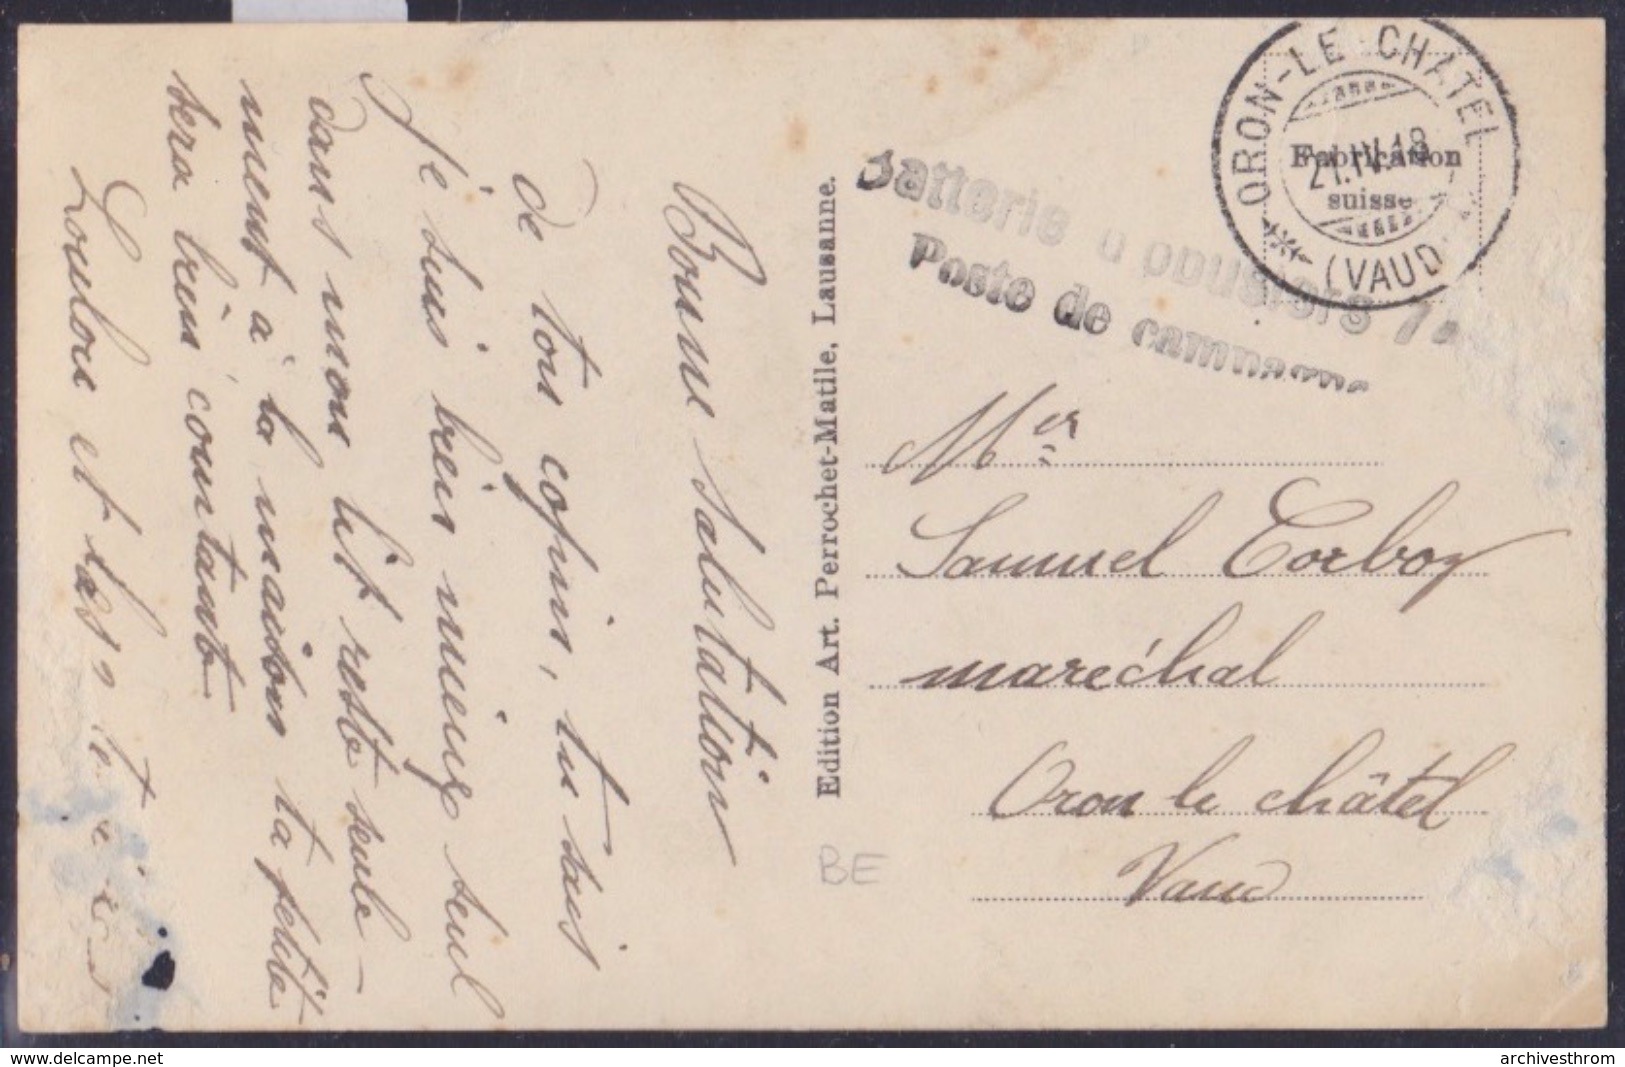 Bonne salutation
de ton copin, tu sais
Je suis bien mieux seul
dans mon lit reste seule-
ment à la maison ta petite
sera bien contante
Loulou et
Edition Art. Perrochet-Matile, Lausanne.
ORON-LE CHATEL
(VAUD)
21.IV.18
Fabrication
suisse
Batterie d'obusiers
Poste de campagne
Mr
Samuel Corboz
maréchal
Oron le châtel
Vaud
BE
www.delcampe.net
archivesthrom